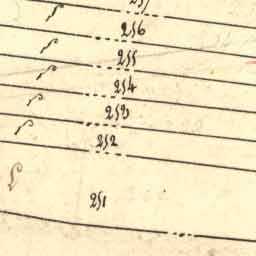 256
255
254
253
252
251